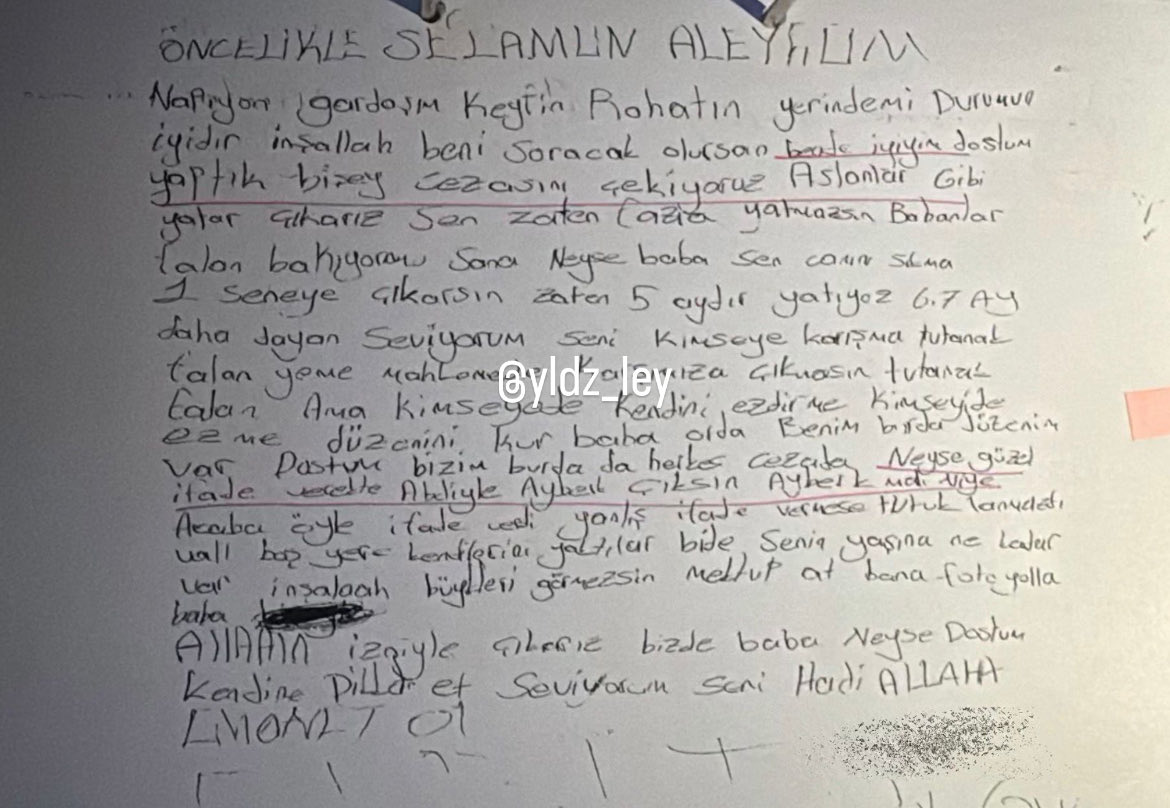 ÖNCELİKLE SELAMUN ALEYKUM
Napıyon gardaşım Keyfin Rohatın yerindemi Durumun
iyidir inşallah beni Soracak olursan bende iyiyim dostum
yaptık bizey cezasını çekiyoruz Aslanlar Gibi
yatar çıkarız Sen zaten fazla yatmazsın Babanlar
falan bakıyorum Sana Neyse baba sen canın sıkma
1 seneye çıkarsın zaten 5 aydır yatıyoz 6.7 AY
daha dayan Seviyorum seni Kimseye karışma tutanak
falan yeme çıkmasın tutanak
@yldz_ley
falan Ama Kimseyede Kendini ezdirme Kimseyide
ezme düzenini kur baba orda Benim burda düzenim
var Dostum bizim burda da herkes cezada Neyse güzel
ifade Abdiyle Ayberk Çıksın Ayberk
Acaba öyle ifade verdi yanlış ifade vermese tutuk
vall boş yere yattılar bide Senin yaşına ne kadar
var inşalaah görmezsin mektup at bana foto yolla
baba
Allahın izniyle çıkarız bizde baba Neyse Dostum
Kendine Dikkat et Seviyorum seni Hadi ALLAHA
EMANET Ol